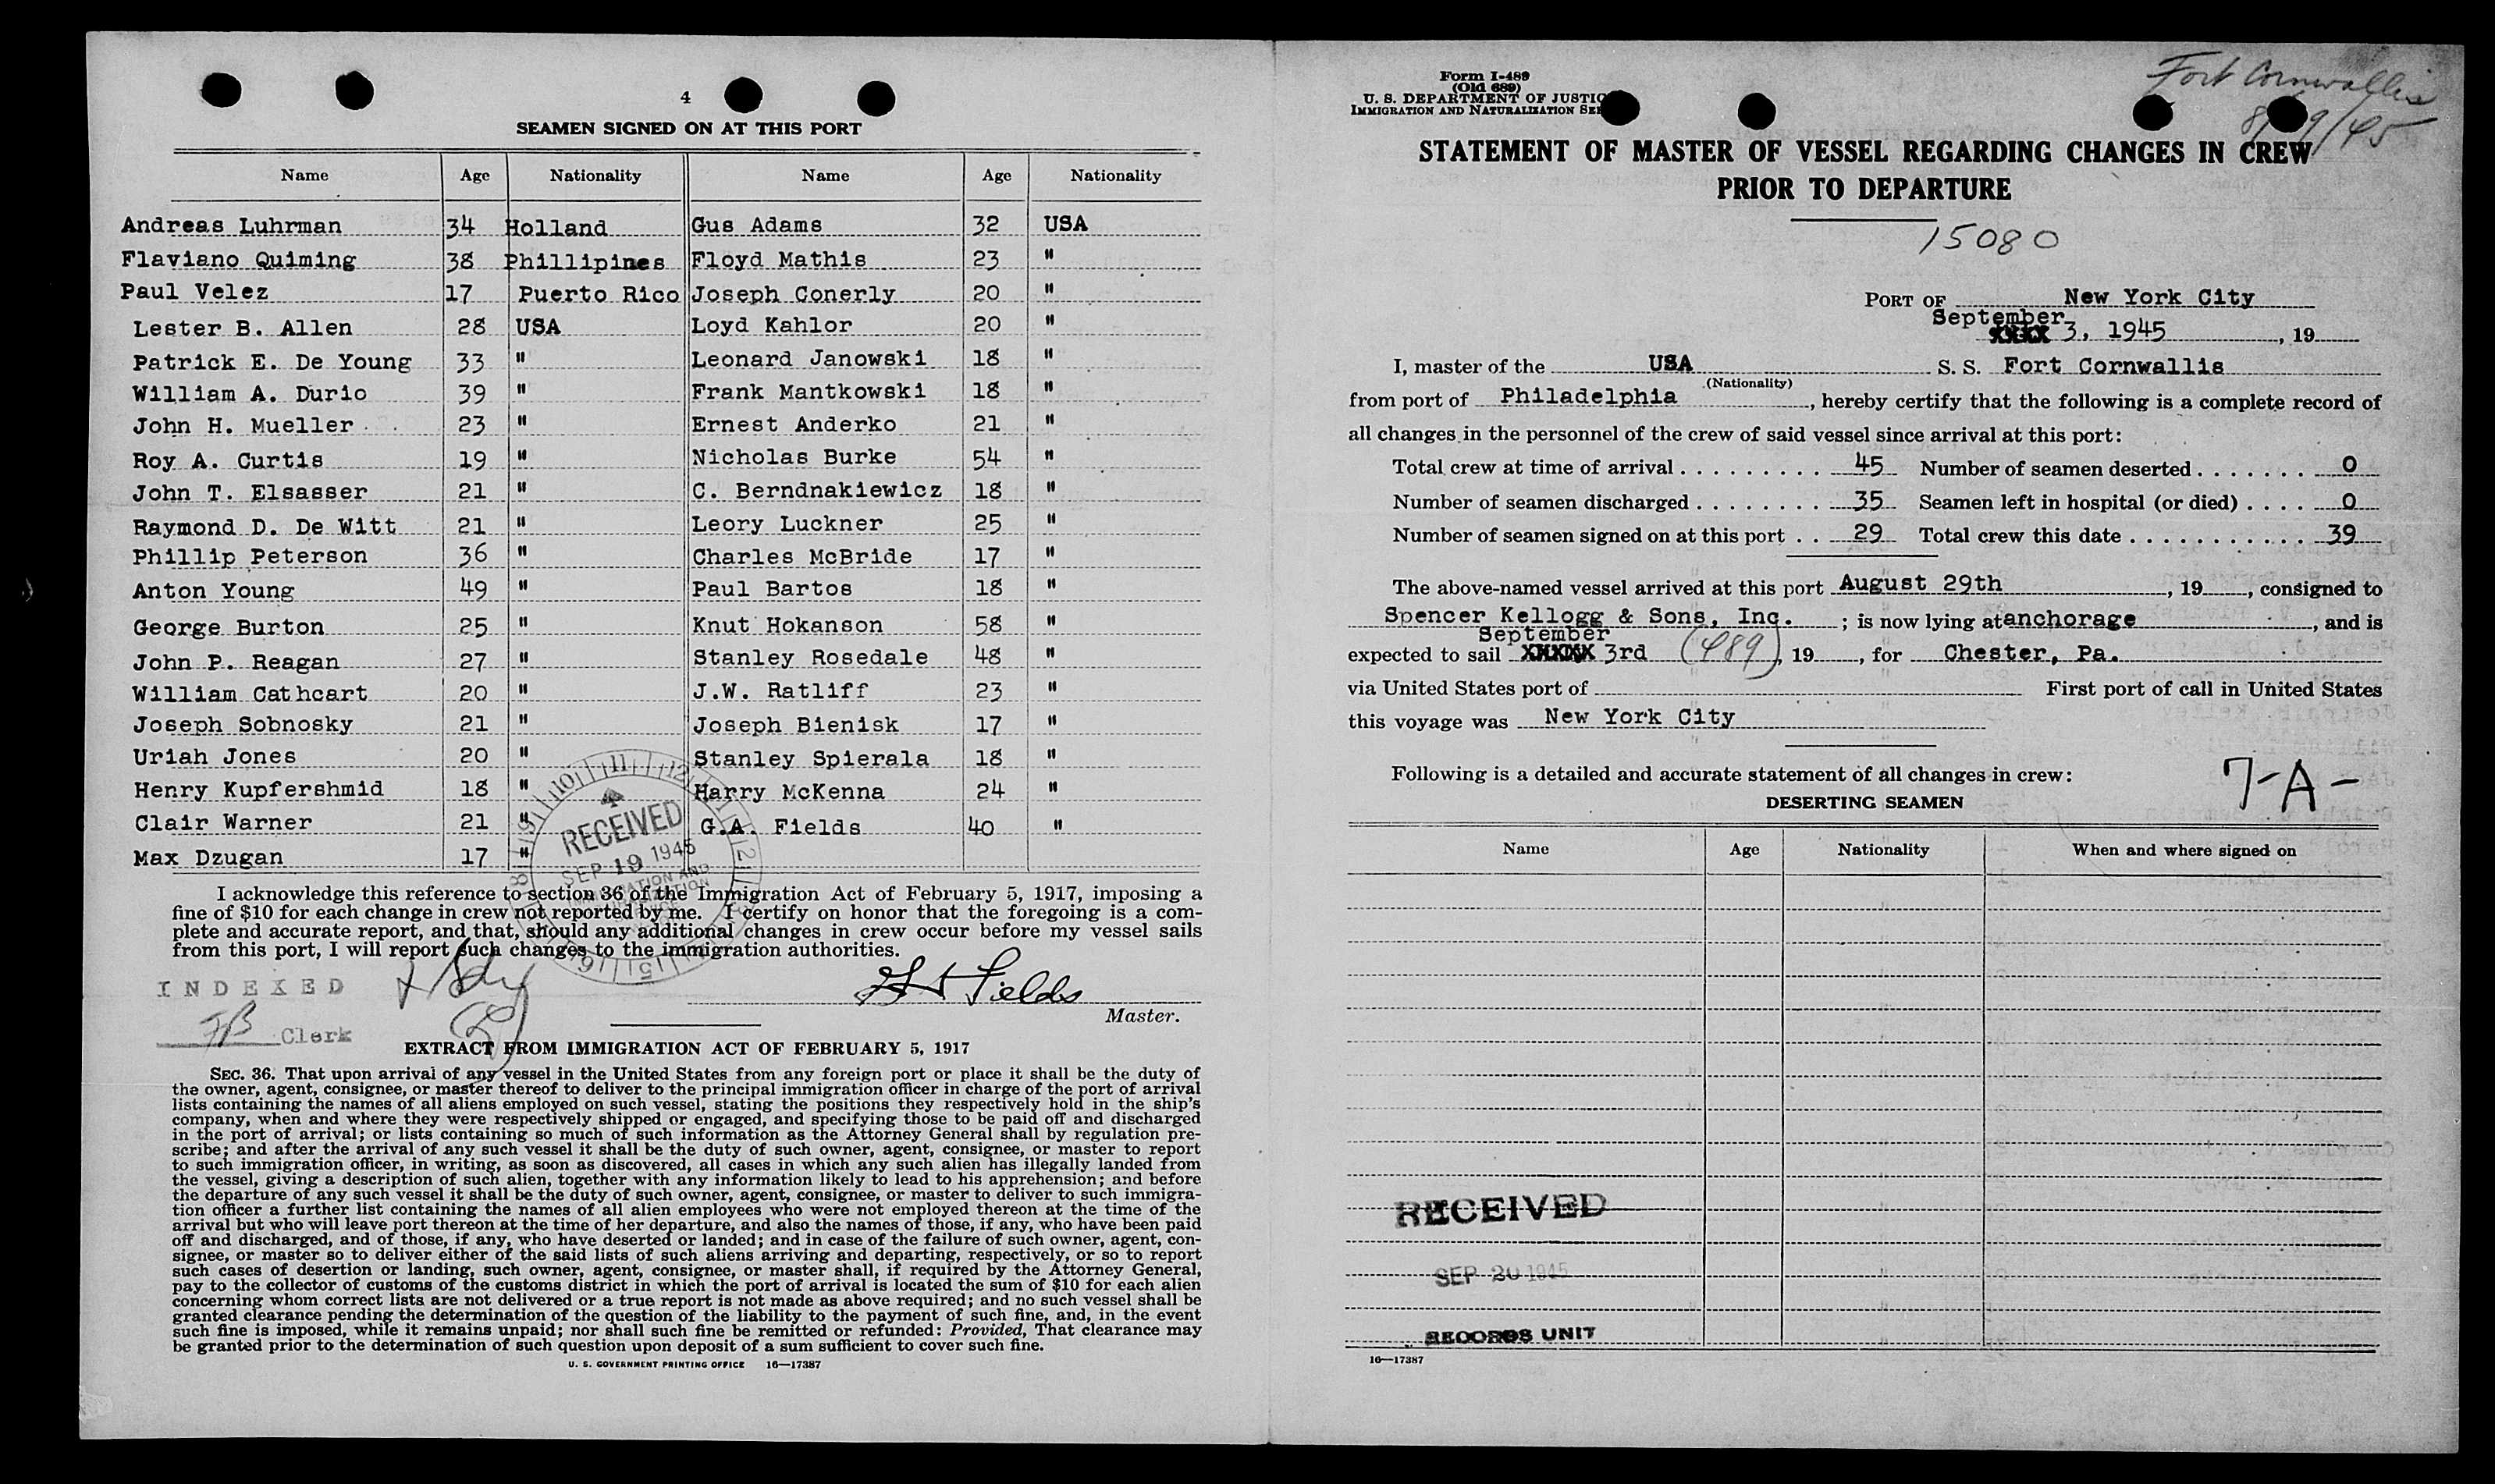 4
SEAMEN SIGNED ON AT THIS PORT
Name Age Nationality Name Age Nationality
Andreas Luhrman 34 Holland Gus Adams 32 USA
Flaviano Quiming 38 Phillipines Floyd Mathis 23 "
Paul Velez 17 Puerto Rico Joseph Conerly 20 "
Lester B. Allen 28 USA Loyd Kahlor 20 "
Patrick E. De Young 33 " Leonard Janowski 18 "
William A. Durio 39 " Frank Mantkowski 18 "
John H. Mueller 23 " Ernest Anderko 21 "
Roy A. Curtis 19 " Nicholas Burke 54 "
John T. Elsasser 21 " C. Berndnakiewicz 18 "
Raymond D. De Witt 21 " Leory Luckner 25 "
Phillip Peterson 36 " Charles McBride 17 "
Anton Young 49 " Paul Bartos 18 "
George Burton 25 " Knut Hokanson 58 "
John P. Reagan 27 " Stanley Rosedale 48 "
William Cathcart 20 " J.W. Ratliff 23 "
Joseph Sobnosky 21 " Joseph Bienisk 17 "
Uriah Jones 20 " Stanley Spierala 18 "
Henry Kupfershmid 18 " Harry McKenna 24 "
Clair Warner 21 " G.A. Fields 40 "
Max Dzugan 17 "
RECEIVED
SEP 19 1945
I acknowledge this reference to section 36 of the Immigration Act of February 5, 1917, imposing a
fine of $10 for each change in crew not reported by me. I certify on honor that the foregoing is a com-
plete and accurate report, and that, should any additional changes in crew occur before my vessel sails
from this port, I will report such changes to the immigration authorities.
INDEXED
Clerk
Fields
Master.
EXTRACT FROM IMMIGRATION ACT OF FEBRUARY 5, 1917
SEC. 36. That upon arrival of any vessel in the United States from any foreign port or place it shall be the duty of
the owner, agent, consignee, or master thereof to deliver to the principal immigration officer in charge of the port of arrival
lists containing the names of all aliens employed on such vessel, stating the positions they respectively hold in the ship's
company, when and where they were respectively shipped or engaged, and specifying those to be paid off and discharged
in the port of arrival; or lists containing so much of such information as the Attorney General shall by regulation pre-
scribe; and after the arrival of any such vessel it shall be the duty of such owner, agent, consignee, or master to report
to such immigration officer, in writing, as soon as discovered, all cases in which any such alien has illegally landed from
the vessel, giving a description of such alien, together with any information likely to lead to his apprehension; and before
the departure of any such vessel it shall be the duty of such owner, agent, consignee, or master to deliver to such immigra-
tion officer a further list containing the names of all alien employees who were not employed thereon at the time of the
arrival but who will leave port thereon at the time of her departure, and also the names of those, if any, who have been paid
off and discharged, and of those, if any, who have deserted or landed; and in case of the failure of such owner, agent, con-
signee, or master so to deliver either of the said lists of such aliens arriving and departing, respectively, or so to report
such cases of desertion or landing, such owner, agent, consignee, or master shall, if required by the Attorney General,
pay to the collector of customs of the customs district in which the port of arrival is located the sum of $10 for each alien
concerning whom correct lists are not delivered or a true report is not made as above required; and no such vessel shall be
granted clearance pending the determination of the question of the liability to the payment of such fine, and, in the event
such fine is imposed, while it remains unpaid; nor shall such fine be remitted or refunded: Provided, That clearance may
be granted prior to the determination of such question upon deposit of a sum sufficient to cover such fine.
U. S. GOVERNMENT PRINTING OFFICE 16—17387
Form I-489
(Old 689)
U. S. DEPARTMENT OF JUSTIC
IMMIGRATION AND NATURALIZATION SE
Fort Cornwallis
STATEMENT OF MASTER OF VESSEL REGARDING CHANGES IN CREW
PRIOR TO DEPARTURE
15080
PORT OF New York City
September
3, 1945, 19
I, master of the USA S. S. Fort Cornwallis
(Nationality)
from port of Philadelphia, hereby certify that the following is a complete record of
all changes in the personnel of the crew of said vessel since arrival at this port:
Total crew at time of arrival 45 Number of seamen deserted 0
Number of seamen discharged 35 Seamen left in hospital (or died) 0
Number of seamen signed on at this port 29 Total crew this date 39
The above-named vessel arrived at this port August 29th, 19, consigned to
Spencer Kellogg & Sons, Inc.; is now lying at anchorage, and is
September
expected to sail XXXXX 3rd (489), 19, for Chester, Pa.
via United States port of First port of call in United States
this voyage was New York City
Following is a detailed and accurate statement of all changes in crew:
7-A-
DESERTING SEAMEN
Name Age Nationality When and where signed on
RECEIVED
SEP 20 1945
RECORDS UNIT
16—17387